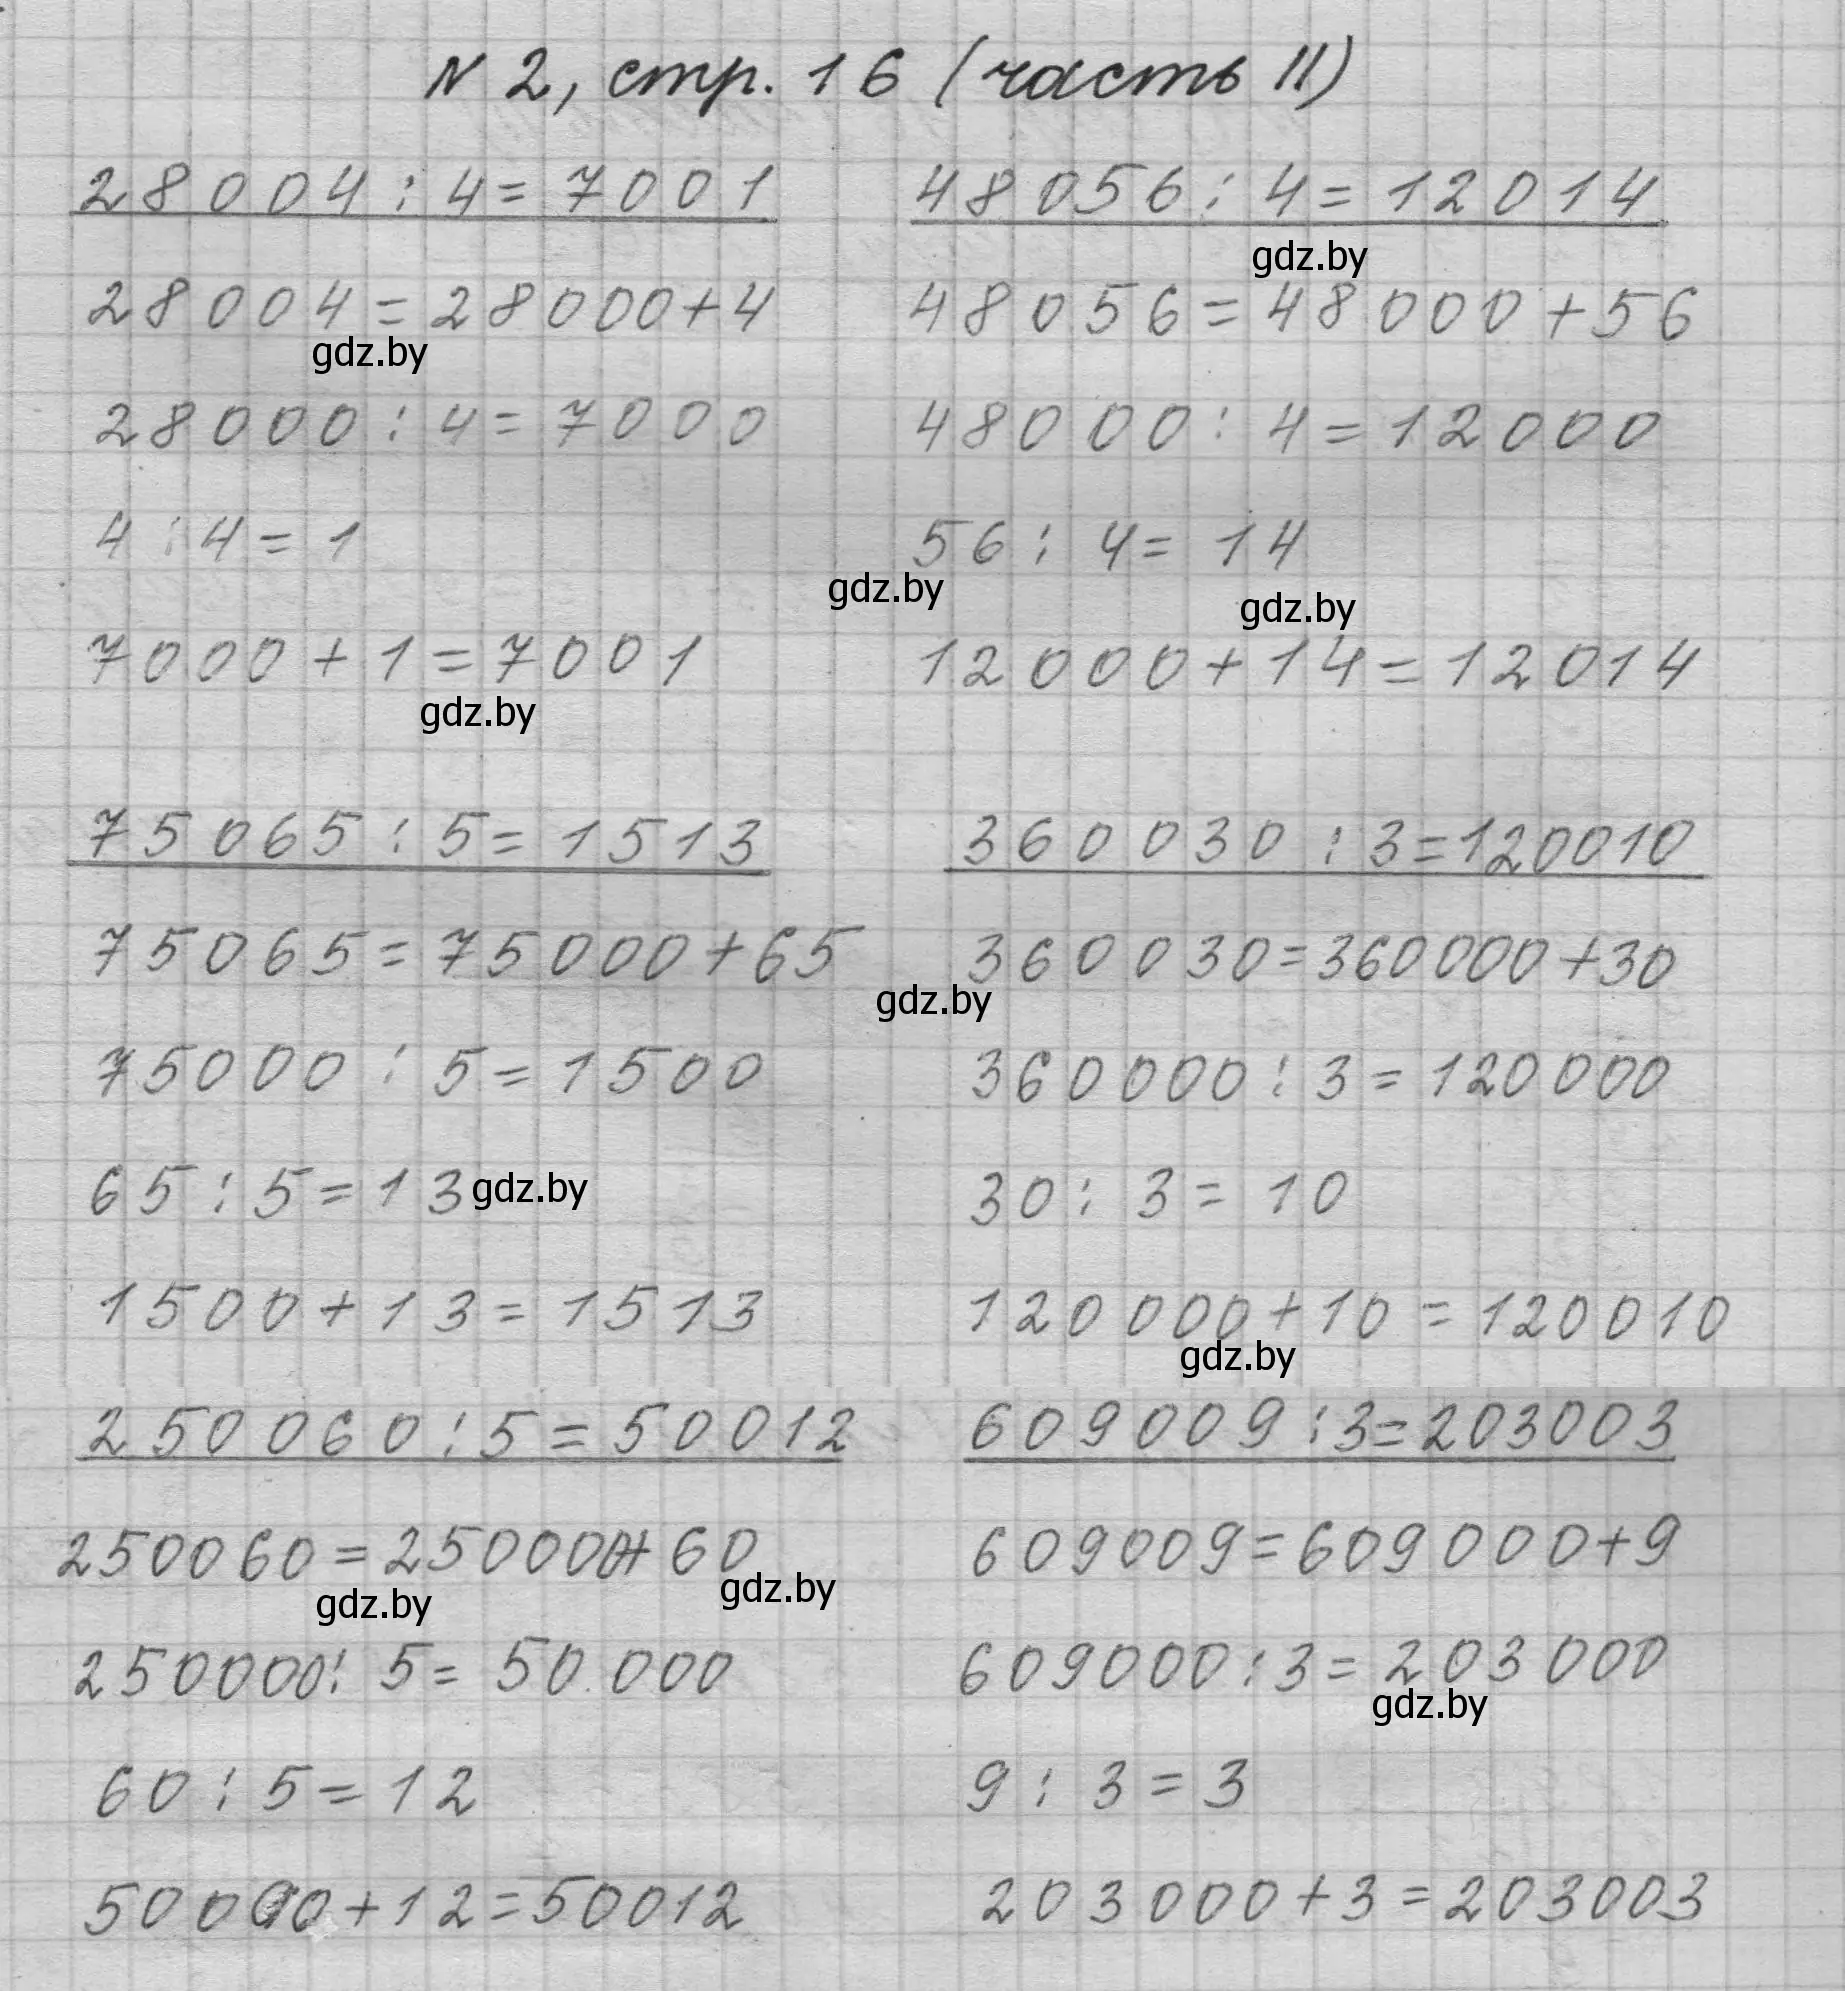 N 2, стр. 16 (часть II)
28004 : 4 = 7001
28004 = 28000 + 4
gdz.by
28000 : 4 = 7000
4 : 4 = 1
7000 + 1 = 7001
gdz.by
48056 : 4 = 12014
gdz.by
48056 = 48000 + 56
48000 : 4 = 12000
56 : 4 = 14
gdz.by
gdz.by
12000 + 14 = 12014
75065 : 5 = 1513
75065 = 75000 + 65
75000 : 5 = 1500
65 : 5 = 13
gdz.by
1500 + 13 = 1513
360030 : 3 = 120010
360030 = 360000 + 30
gdz.by
360000 : 3 = 120000
30 : 3 = 10
120000 + 10 = 120010
gdz.by
250060 : 5 = 50012
250060 = 250000 + 60
gdz.by
gdz.by
250000 : 5 = 50.000
60 : 5 = 12
50000 + 12 = 50012
609009 : 3 = 203003
609009 = 609000 + 9
609000 : 3 = 203000
gdz.by
9 : 3 = 3
203000 + 3 = 203003